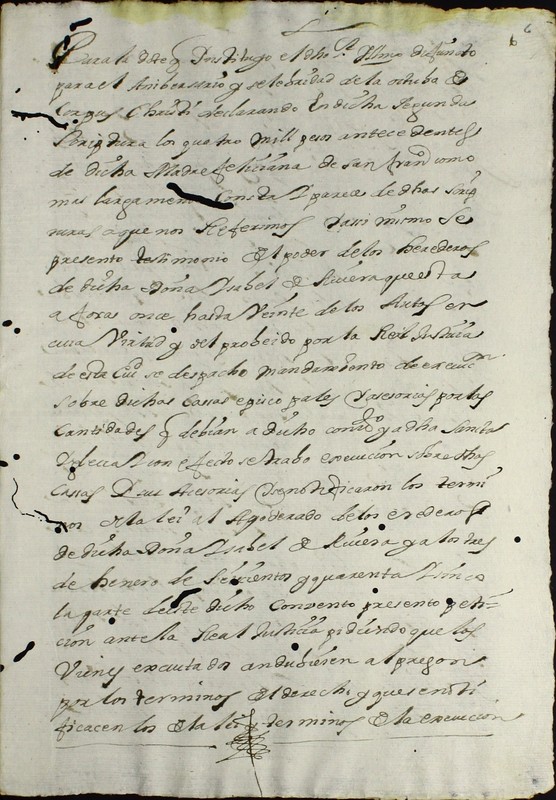 6
para el Aniversario y selebridad de la octaba de
Corpus Christi declarando En dicha segunda
scriptura los quatro mill pesos antecedentes
de dicha Madre feliciana de san fran como
mas largamente Consta I parece de dhas scrip
turas a que nos Referimos Iassi mismo se
presento testimonio del poder de los herederos
de dicha Doña Isabel de Rivera que esta
a foxas once hasta Veinte de los Autos en
cuia Virtud y del probeido por la Real Justicia
de esta Ciud se despacho mandamiento de execuon
sobre dichas Cassas episcopales Iasesorias por las
Cantidades q debian a dicho convto y a dha Sancta
Yglecia I con efecto se trabo execucion sobre dhas
Cassas I sus Acesorias I se notificaron los termi
nos de la lei al Apoderado de los erederos
de dicha Doña Isabel de Rivera y a los tres
de henero de Setecientos y quarenta I sinco
la parte de este dicho Convento presento peti
cion ante la Real Justicia pidiendo que los
Vienes executados andubiesen al pregon
por los terminos del derecho y que se noti
ficacen los de la lei y terminos de la execucion